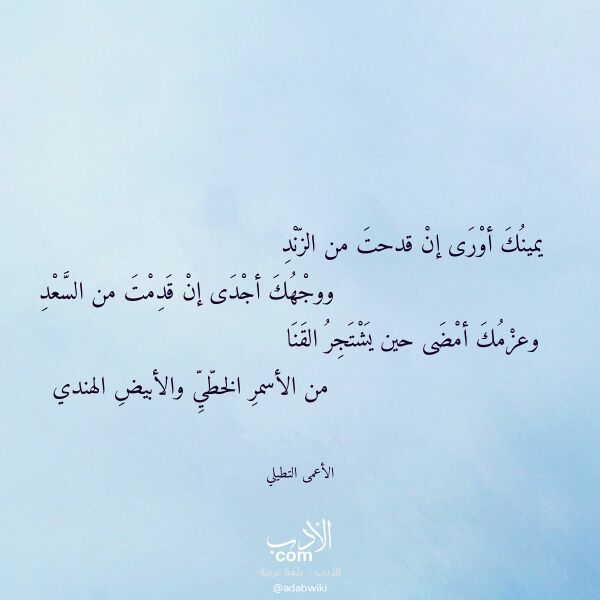 يمينُكَ أوْرَى إنْ قدحتَ من الزّنْدِ
ووجْهُكَ أجْدَى إنْ قَدِمْتَ من السَّعْدِ
وعزْمُكَ أمْضَى حين يَشْتَجِرُ القَنَا
من الأسمرِ الخطّيِّ والأبيضِ الهندي
الأعمى التطيلي
الأدب
com
الأدب .. بلغة عربية
@adabwiki